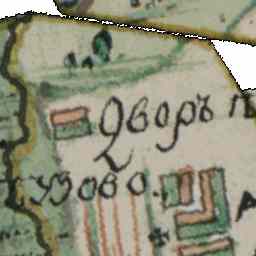 Дворъ п
узово.